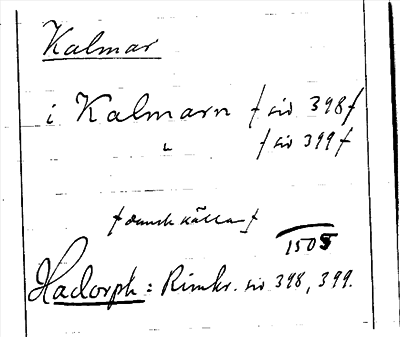 Kalmar
i Kalmarn / sid 398 /
" / sid 399 /
/ dansk källa /
1505
Hadorph: Rimkr. sid 398, 399.